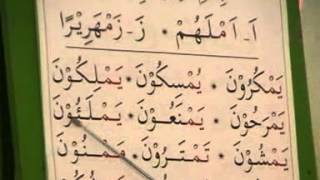 اَ ـ اَمْلَهُمْ * زَ ـ زَمْهَرِيْرًا
يَمْكُرُوْنَ * يُمْسِكُوْنَ * يَمْلِكُوْنَ
يَمْرَحُوْنَ * يَمْنَعُوْنَ * يَمْلَئُوْنَ
يَمْشُوْنَ * تَمْتَرُوْنَ *